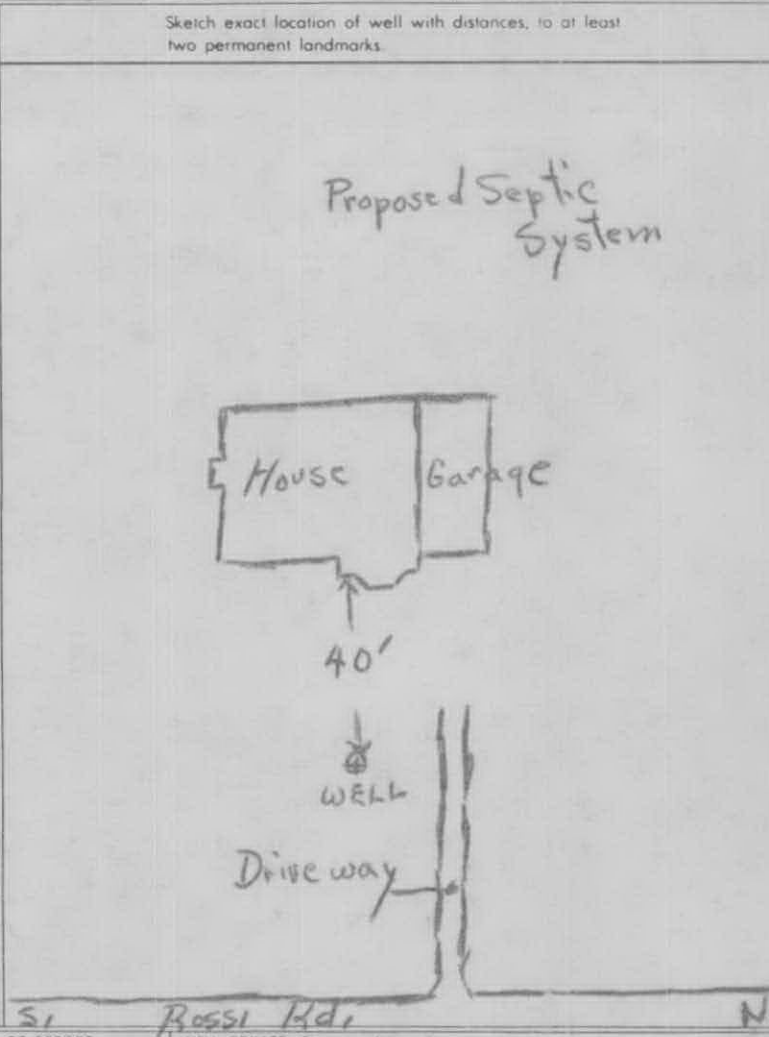 Sketch exact location of well with distances, to at least
two permanent landmarks.
Proposed Septic
System
House Garage
40'
WELL
Driveway
S. Rossi Rd. N